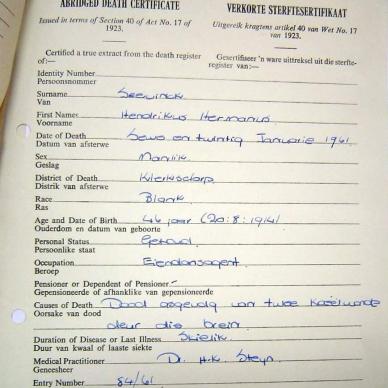 ABRIDGED DEATH CERTIFICATE
VERKORTE STERFTESERTIFIKAAT
Issued in terms of Section 40 of Act No. 17 of 1923.
Uitgereik kragtens artikel 40 van Wet No. 17 van 1923.
Certified a true extract from the death register of:—
Gesertifiseer 'n ware uittreksel uit die sterfteregister van:—
Identity Number
Persoonsnommer
Surname
Van
First Names Hendrikus Hermanus
Voorname
Date of Death Sewe en twintig Januarie 1961.
Datum van afsterwe
Sex Manlik
Geslag
District of Death Klerksdorp
Distrik van afsterwe
Race Blank
Ras
Age and Date of Birth 46 jaar (20:8:1914)
Ouderdom en datum van geboorte
Personal Status Getroud
Persoonlike staat
Occupation Eiendomsagent
Beroep
Pensioner or Dependent of Pensioner
Gepensioeneerde of afhanklike van gepensioeneerde
Causes of Death Dood asgevolg van twee koeëlwonde
Oorsake van dood
deur die brein
Duration of Disease or Last Illness Skielik
Duur van kwaal of laaste siekte
Medical Practitioner D. H.K. Steyn
Geneesheer
Entry Number 84/61